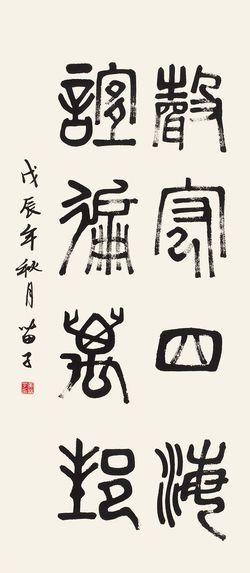 聲宏四海
誼徧萬邦
戊辰年秋月苗子